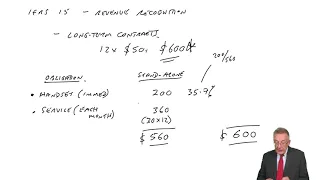 IFRS 15 - REVENUE RECOGNITION
- LONG-TERM CONTRACTS
12 x $50 = $600
200/560
OBLIGATION STAND-ALONE
• HANDSET (IMMED) 200 35.7%
• SERVICE (EACH MONTH) 360
(30x12)
$ 560 $ 600